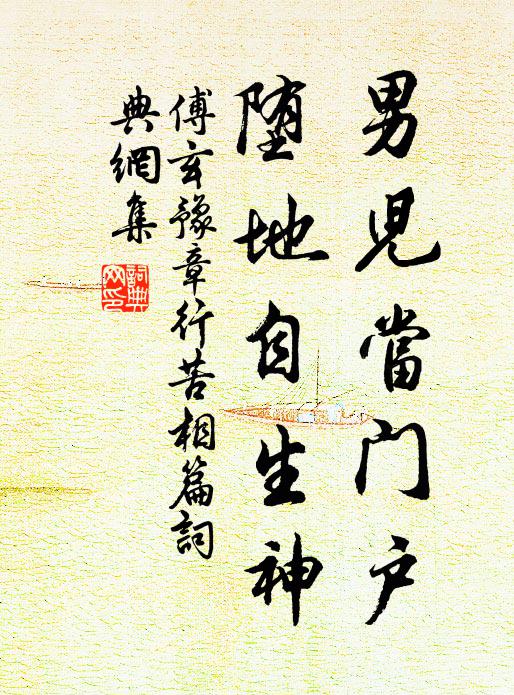 男児當门户
堕地自生神
傅玄豫章行苦相篇詞
典網集
詞典
网印